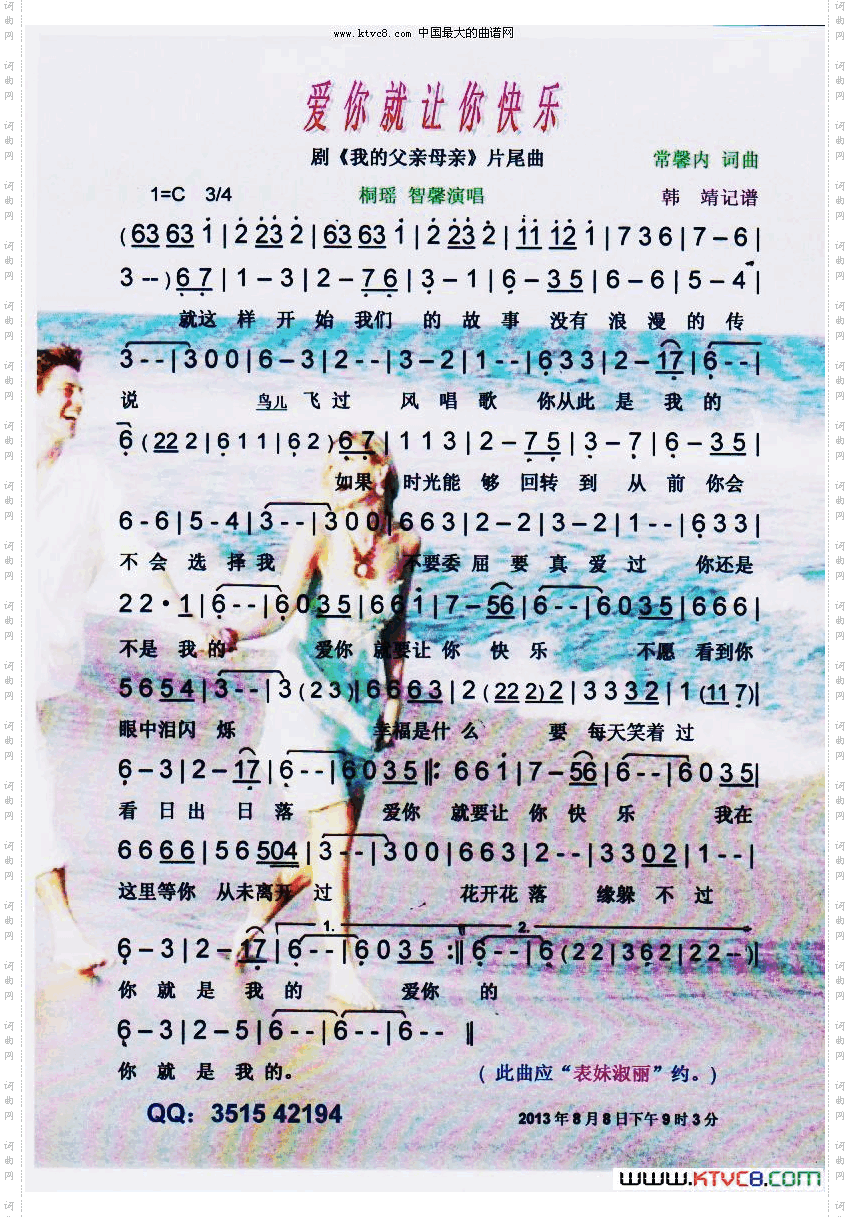 www.ktvc8.com 中国最大的曲谱网
爱你就让你快乐
剧《我的父亲母亲》片尾曲 常馨内 词曲
1=C 3/4 桐瑶 智馨演唱 韩 靖记谱
(63 63 1|2 23 2|63 63 1|2 23 2|11 12 1|7 3 6|7 – 6|
3 -- )6 7|1 – 3|2 – 7 6|3 – 1|6 – 3 5|6 – 6|5 – 4|
就这 样 开 始 我们 的 故 事 没有 浪 漫 的 传
3 - -|3 0 0|6 – 3|2 - -|3 – 2|1 - -|6 3 3|2 – 17|6 - -|
说 鸟儿 飞 过 风 唱 歌 你从此 是 我 的
6 (22 2|6 1 1|6 2 )6 7|1 1 3|2 – 7 5|3 – 7|6 – 3 5|
如果 时光能 够 回转 到 从 前 你会
6 - 6|5 - 4|3 - -|3 0 0|6 6 3|2 – 2|3 – 2|1 - -|6 3 3|
不 会 选 择 我 不要委 屈 要 真 爱 过 你还是
2 2 · 1|6 - -|6 0 3 5|6 6 1|7 – 56|6 - -|6 0 3 5|6 6 6|
不是 我 的 爱你 就要让 你 快 乐 不愿 看到你
5 6 5 4|3 - -|3 (2 3)|6 6 6 3|2 (22 2)2|3 3 3 2|1 (11 7)|
眼中泪闪 烁 幸福是什 么 要 每天笑着 过
6 – 3|2 – 17|6 - -|6 0 3 5‖: 6 6 1|7 – 56|6 - -|6 0 3 5|
看 日 出 日 落 爱你 就要让 你 快 乐 我在
6 6 6 6|5 6 504|3 - -|3 0 0|6 6 3|2 - -|3 3 0 2|1 - -|
这里等你 从未离开 过 花开花 落 缘躲 不 过
1. 2.
6 – 3|2 – 17|6 - -|6 0 3 5 :‖6 - -|6 (2 2|3 6 2|2 2 --)|
你 就 是 我 的 爱你 的
6 – 3|2 – 5|6 - -|6 - -|6 - - ‖
你 就 是 我 的。 ( 此曲应“表妹淑丽”约。)
QQ：3515 42194 2013年8月8日下午9时3分
www.KTVC8.com
词曲网